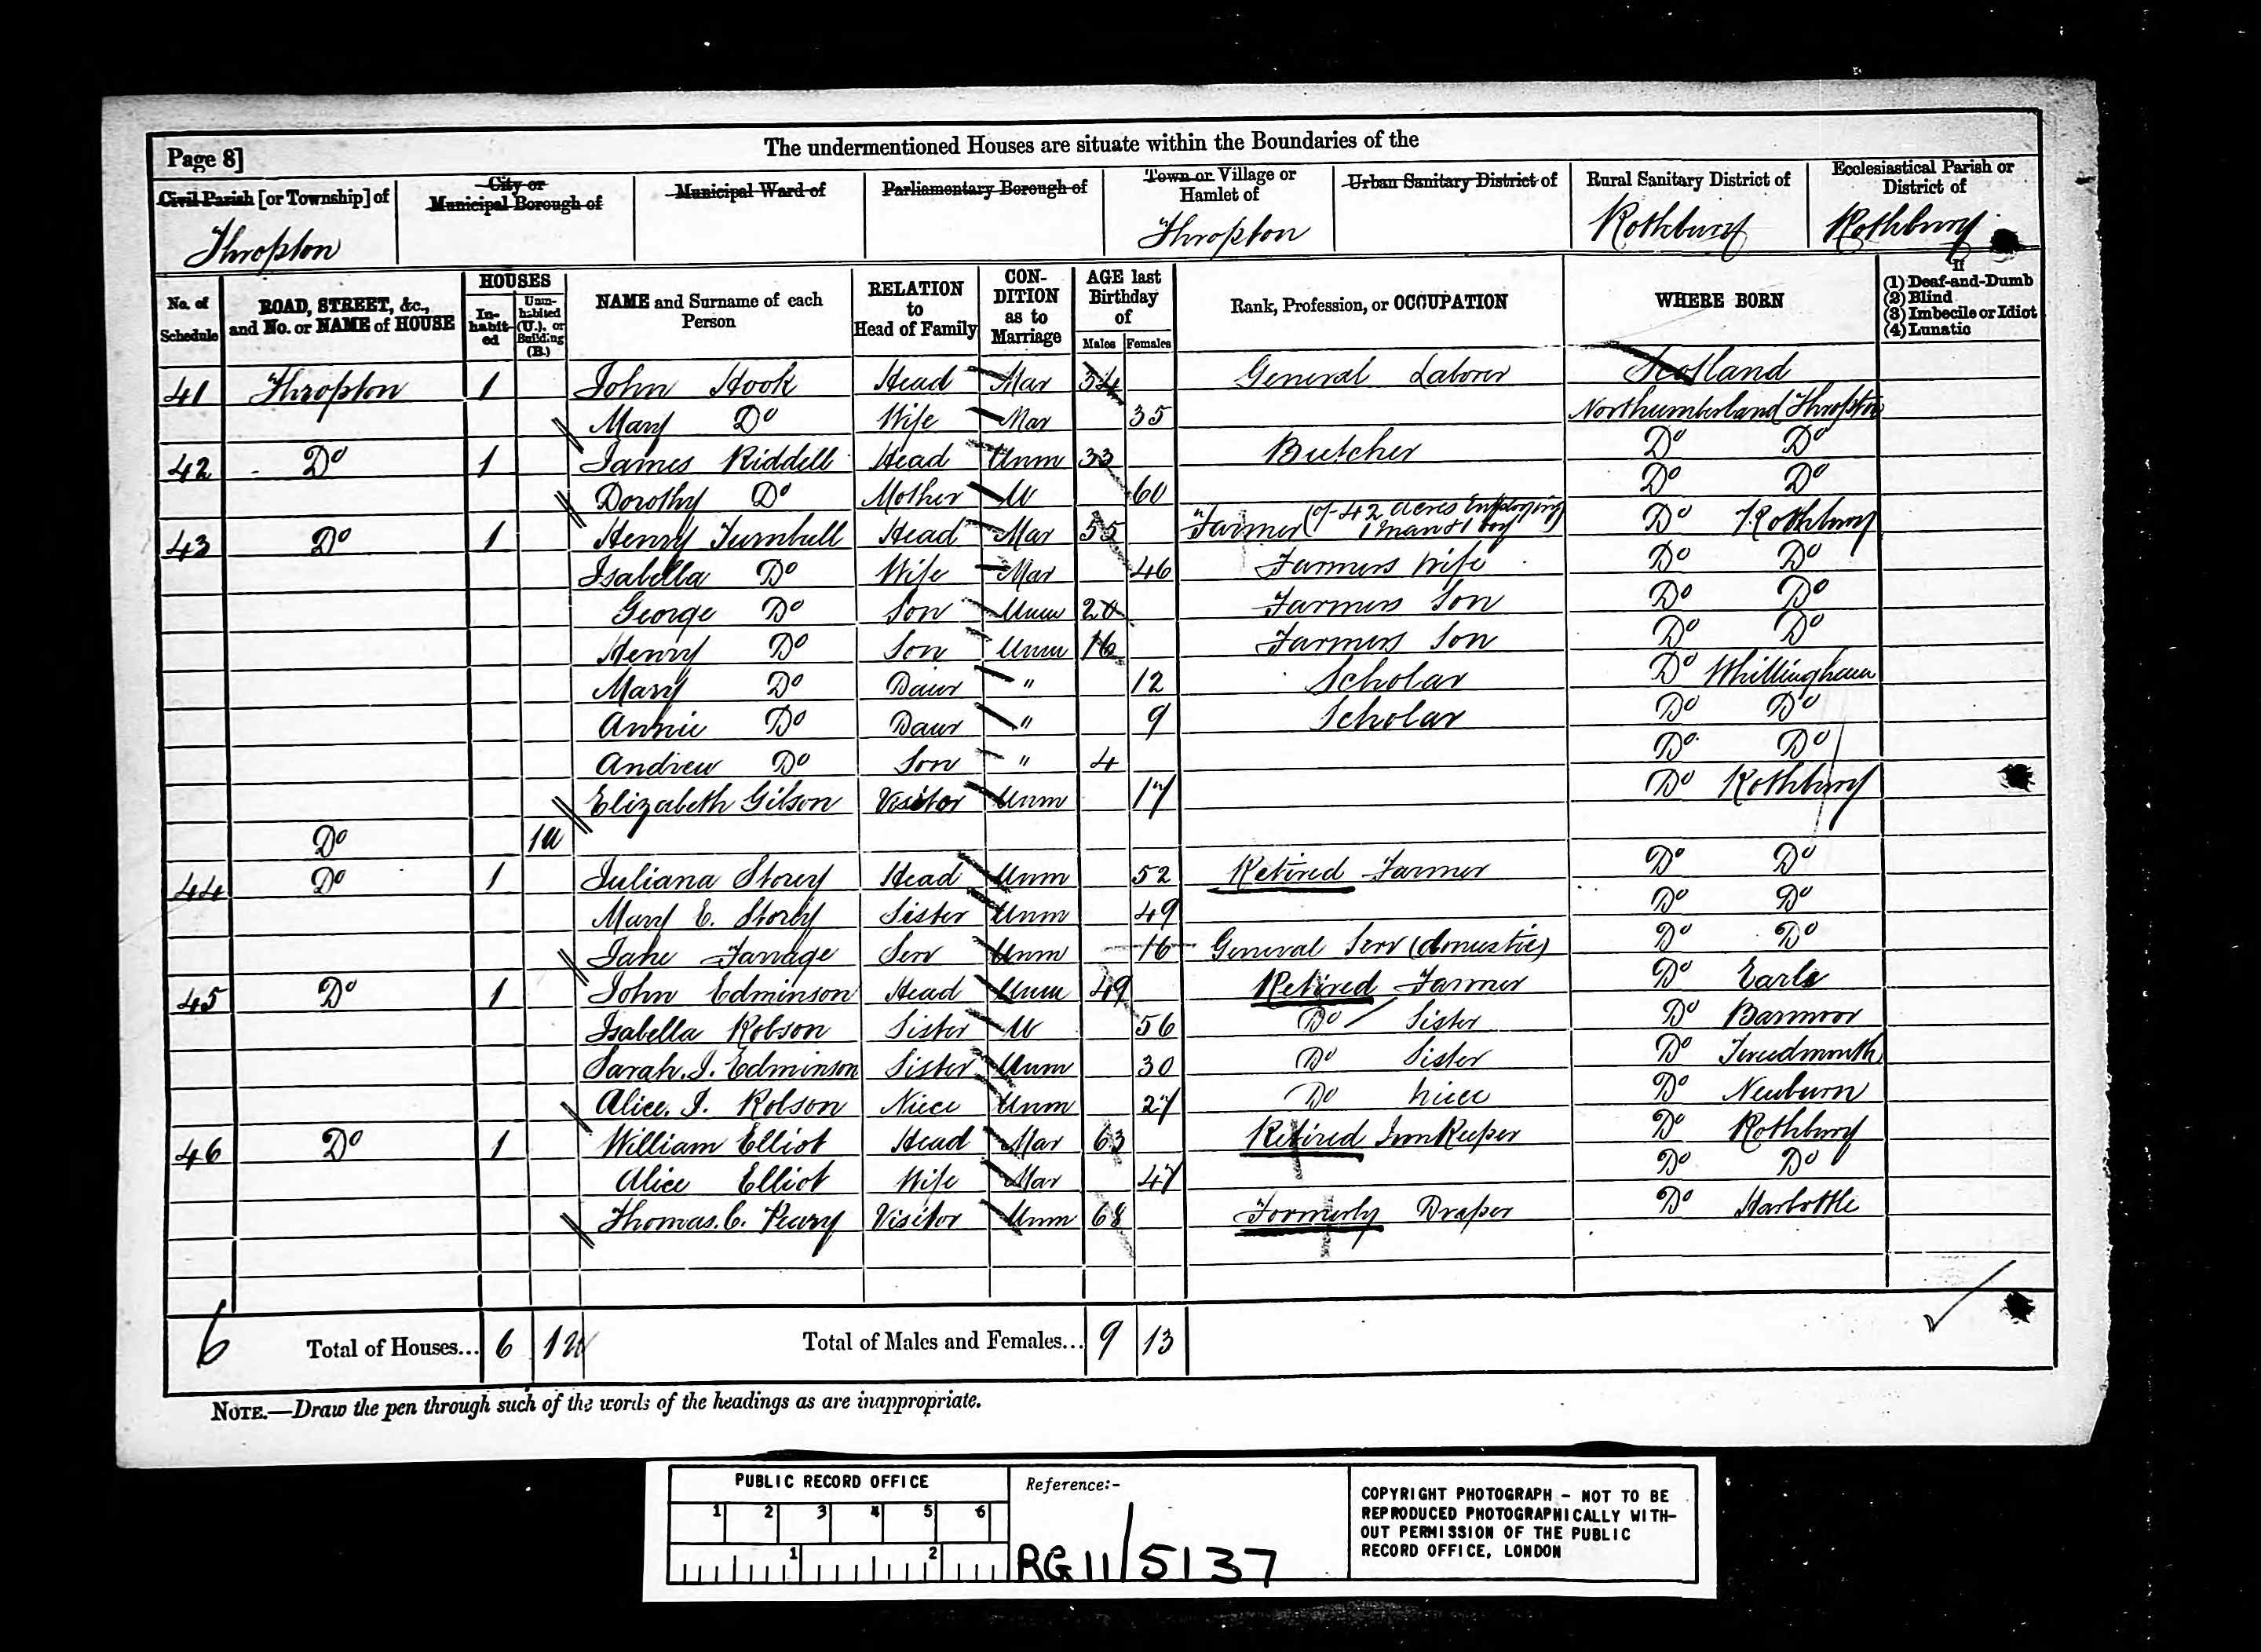 The undermentioned Houses are situate within the Boundaries of the
Page 8]
Civil Parish [or Township] of
City or Municipal Borough of
Municipal Ward of
Parliamentary Borough of
Town or Village or Hamlet of
Urban Sanitary District of
Rural Sanitary District of
Ecclesiastical Parish or District of
Thropton Thropton Rothbury Rothbury
No. of Schedule
ROAD, STREET, &c., and No. or NAME of HOUSE
HOUSES
In-habit-ed
Unin-habited (U.), or Building (B.)
NAME and Surname of each Person
RELATION to Head of Family
CON-DITION as to Marriage
AGE last Birthday of
Males Females
Rank, Profession, or OCCUPATION
WHERE BORN
If
(1) Deaf-and-Dumb
(2) Blind
(3) Imbecile or Idiot
(4) Lunatic
41 Thropton 1 John Hook Head Mar 34 General Laborer Scotland
Mary Do Wife Mar 35 Northumberland Thropton
42 Do 1 James Riddell Head Unm 33 Butcher Do Do
Dorothy Do Mother W 60 Do Do
43 Do 1 Henry Turnbull Head Mar 55 Farmer (of 42 acres Employing 1 man & 1 boy Do Rothbury
Isabella Do Wife Mar 46 Farmers Wife Do Do
George Do Son Unm 20 Farmers Son Do Do
Henry Do Son Unm 16 Farmers Son Do Do
Mary Do Daur " 12 Scholar Do Whittingham
Annie Do Daur " 9 Scholar Do Do
Andrew Do Son " 4 Do Do
Elizabeth Gibson Visitor Unm 17 Do Rothbury
Do 1U
44 Do 1 Juliana Storey Head Unm 52 Retired Farmer Do Do
Mary E. Storey Sister Unm 49 Do Do
Jane Farrage Serv Unm 16 General Serv (domestic) Do Do
45 Do 1 John Edminson Head Unm 49 Retired Farmer Do Earle
Isabella Robson Sister W 56 Do Sister Do Barmoor
Sarah. J. Edminson Sister Unm 30 Do Sister Do Tweedmouth
Alice. J. Robson Niece Unm 27 Do Niece Do Newburn
46 Do 1 William Elliot Head Mar 63 Retired InnKeeper Do Rothbury
Alice Elliot Wife Mar 47 Do Do
Thomas. C. Visitor Unm 68 Formerly Draper Do Harbottle
6 Total of Houses... 6 1U Total of Males and Females... 9 13
NOTE.—Draw the pen through such of the words of the headings as are inappropriate.
PUBLIC RECORD OFFICE
1 2 3 4 5 6
1 2
Reference:-
RG 11/5137
COPYRIGHT PHOTOGRAPH - NOT TO BE
REPRODUCED PHOTOGRAPHICALLY WITH-
OUT PERMISSION OF THE PUBLIC
RECORD OFFICE, LONDON